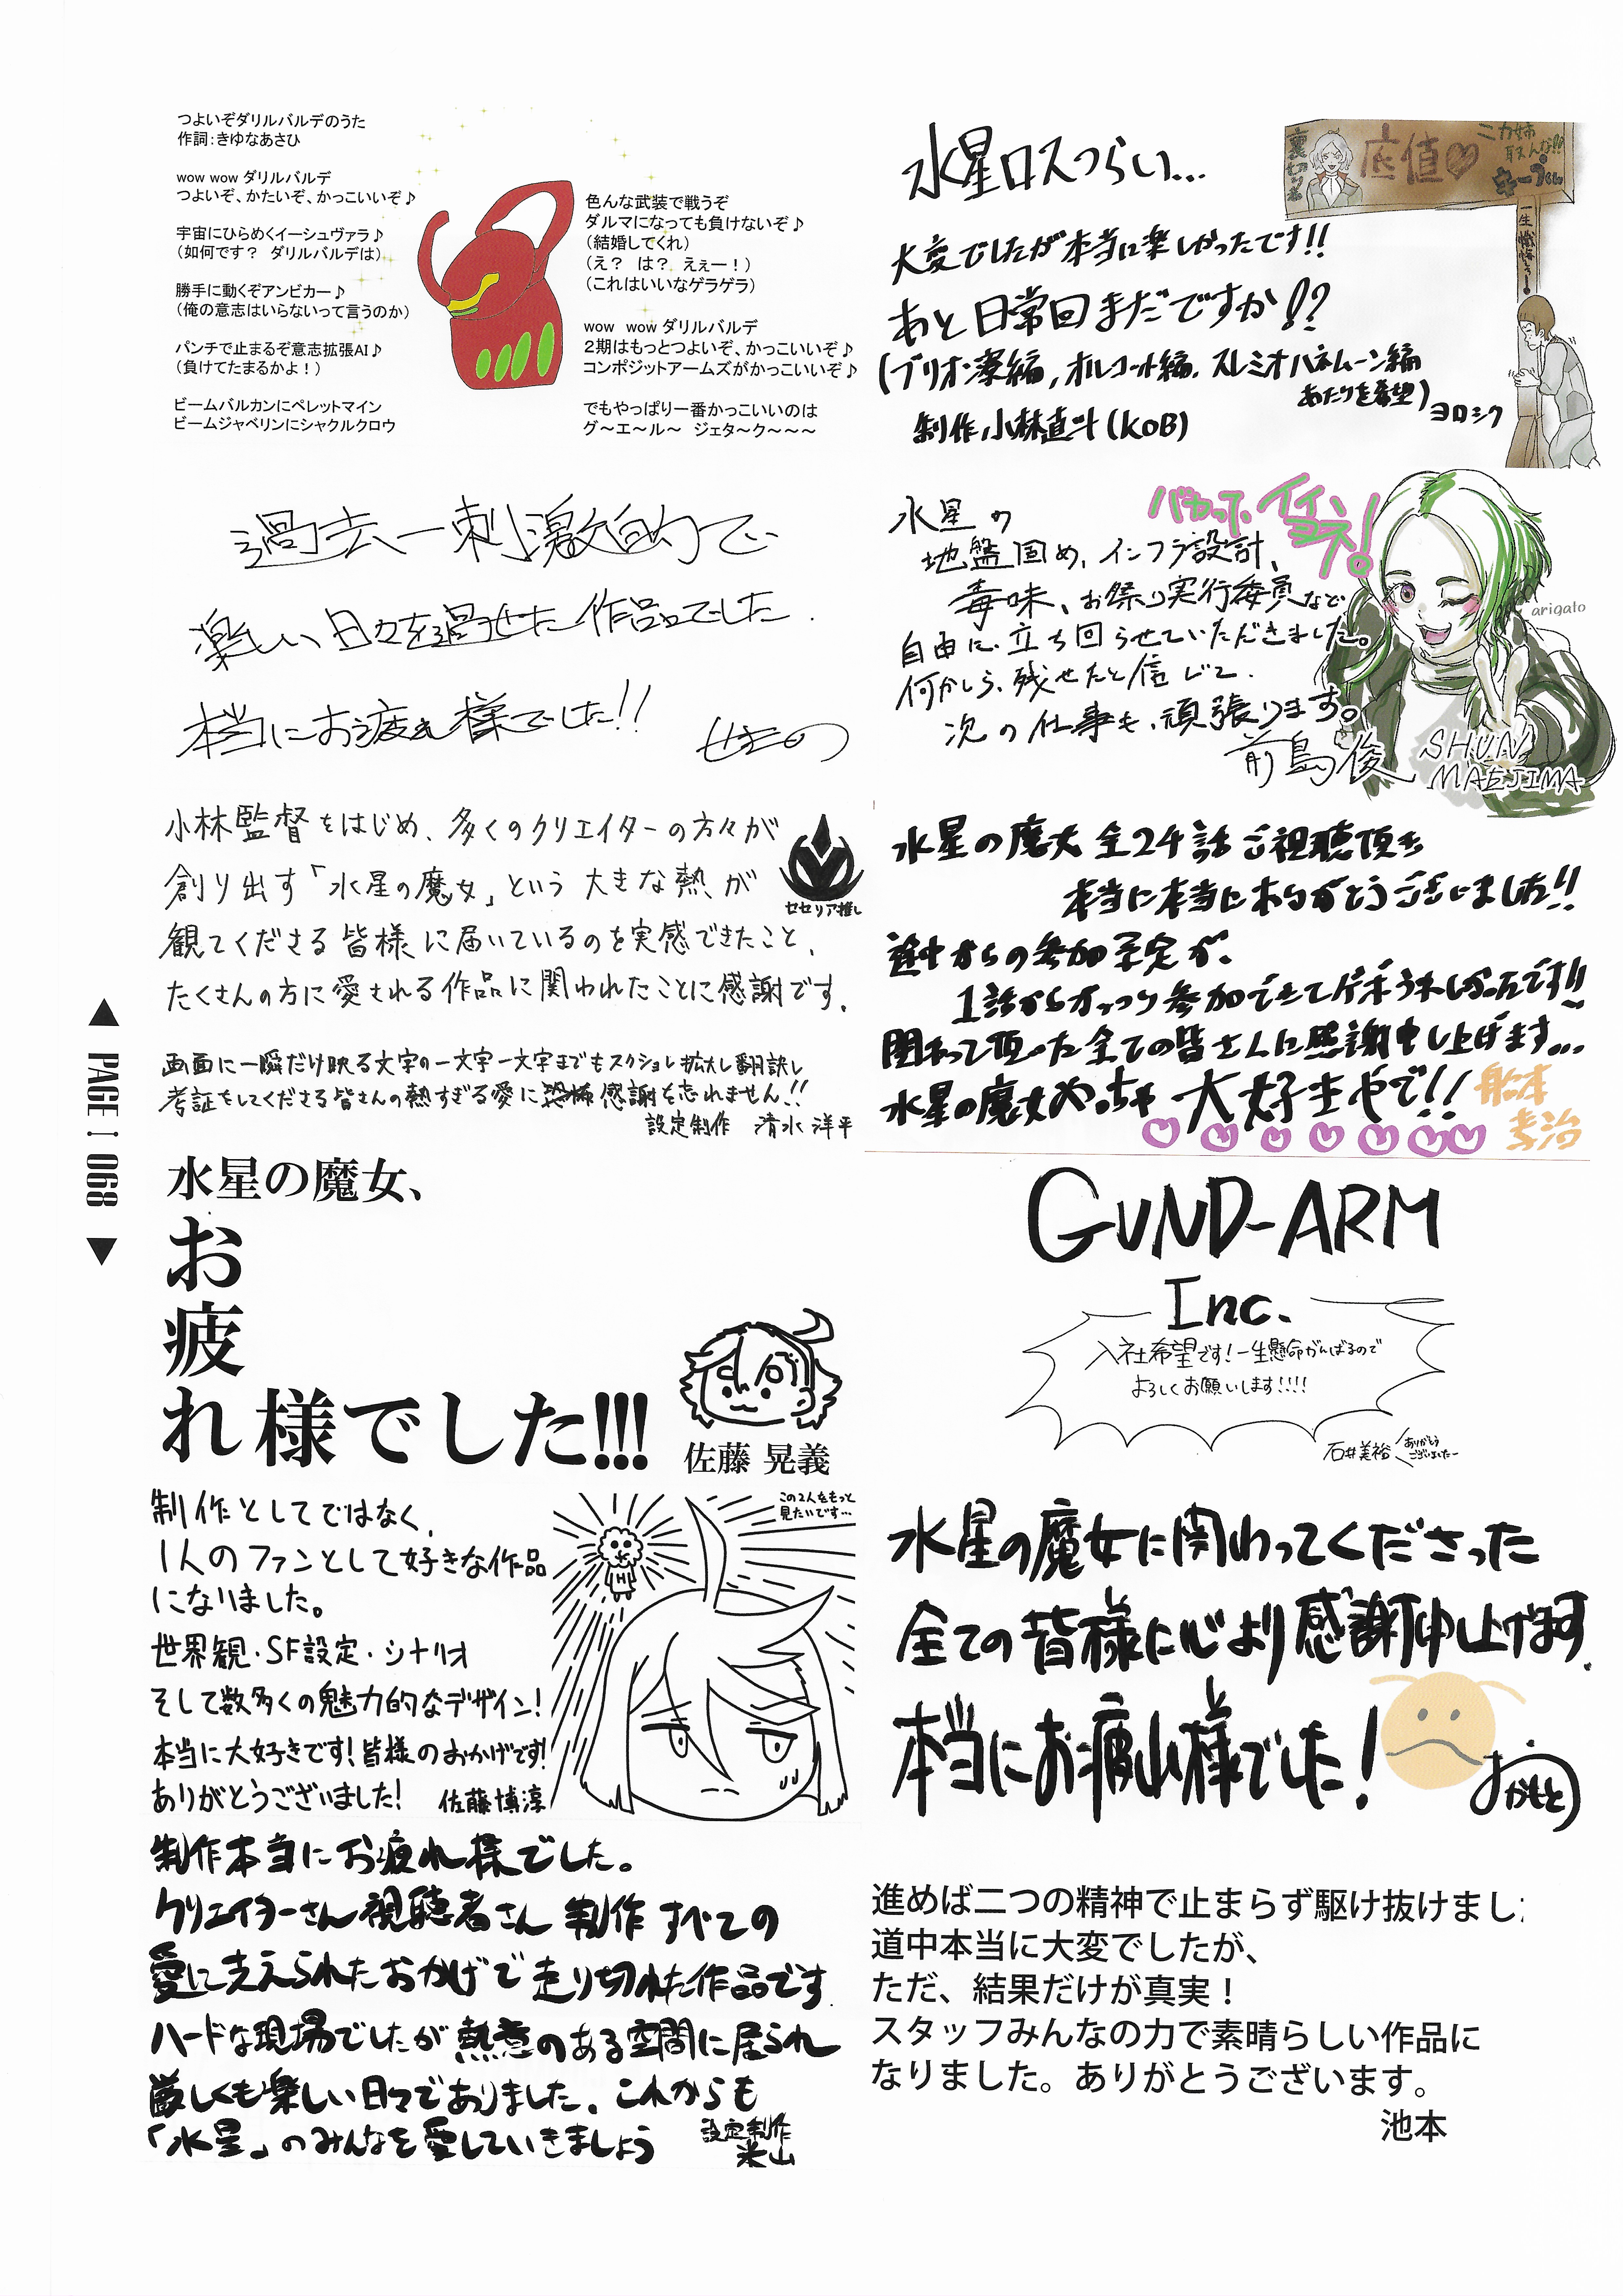 つよいぞダリルバルデのうた
作詞：きゆなあさひ
wow wow ダリルバルデ
つよいぞ、かたいぞ、かっこいいぞ♪
宇宙にひらめくイーシュヴァラ♪
（如何です？ ダリルバルデは）
勝手に動くぞアンビカー♪
（俺の意志はいらないって言うのか）
パンチで止まるぞ意志拡張AI♪
（負けてたまるかよ！）
ビームバルカンにペレットマイン
ビームジャベリンにシャクルクロウ
色んな武装で戦うぞ
ダルマになっても負けないぞ♪
（結婚してくれ）
（え？ は？ えぇー！）
（これはいいなゲラゲラ）
wow wow ダリルバルデ
２期はもっとつよいぞ、かっこいいぞ♪
コンポジットアームズがかっこいいぞ♪
でもやっぱり一番かっこいいのは
グ〜エ〜ル〜 ジェタ〜ク〜〜〜
水星ロスつらい…
大変でしたが本当に楽しかったです!!
あと日常回まだですか!?
(ブリオン寮編, オルコット編, スレミオハネムーン編
あたりを希望)ヨロシク
制作 小林直斗(KOB)
底値♡
過去一刺激的で
楽しい日々を過せた作品でした.
本当にお疲れ様でした!!
水星の
地盤固め、インフラ設計、
毒味、お祭り実行委員など
自由に立ち回らせていただきました。
何かしら、残せたと信じて.
次の仕事も、頑張ります。
前島俊
SHUN
MAEJIMA
arigato
小林監督をはじめ、多くのクリエイターの方々が
創り出す「水星の魔女」という大きな熱が
観てくださる皆様に届いているのを実感できたこと、
たくさんの方に愛される作品に関われたことに感謝です.
セセリア推し
画面に一瞬だけ映る文字の一文字一文字までもスクショし拡大し翻訳し
考証をしてくださる皆さんの熱すぎる愛に恐怖感謝を忘れません!!
設定制作 清水 洋平
水星の魔女 全24話ご視聴頂き
本当に本当にありがとうございました!!
途中からの参加予定が、
1話からがっつり参加できてゲキうれしかったです!!
関わって頂いた全ての皆さんに感謝申し上げます…
水星の魔女めっちゃ大好きやで!!
船本
孝治
PAGE 068
水星の魔女、
お
疲
れ様でした!!!
佐藤 晃義
GUND-ARM
Inc.
入社希望です！一生懸命がんばるので
よろしくお願いします!!!!
石井美裕
ありがとう
ございましたー
制作としてではなく、
1人のファンとして好きな作品
になりました。
世界観・SF設定・シナリオ
そして数多くの魅力的なデザイン！
本当に大好きです！皆様のおかげです!
ありがとうございました！ 佐藤博淳
この2人をもっと
見たいです…
H
水星の魔女に関わってくださった
全ての皆様に心より感謝申し上げます.
本当にお疲れ様でした！
おかもと
制作本当にお疲れ様でした。
クリエイターさん視聴者さん 制作 すべての
愛に支えられたおかげで走り切れた作品です.
ハードな現場でしたが熱意のある空間に居られ
厳しくも楽しい日々でありました、これからも
「水星」のみんなを愛していきましょう
設定制作
米山
進めば二つの精神で止まらず駆け抜けまし
道中本当に大変でしたが、
ただ、結果だけが真実！
スタッフみんなの力で素晴らしい作品に
なりました。ありがとうございます。
池本